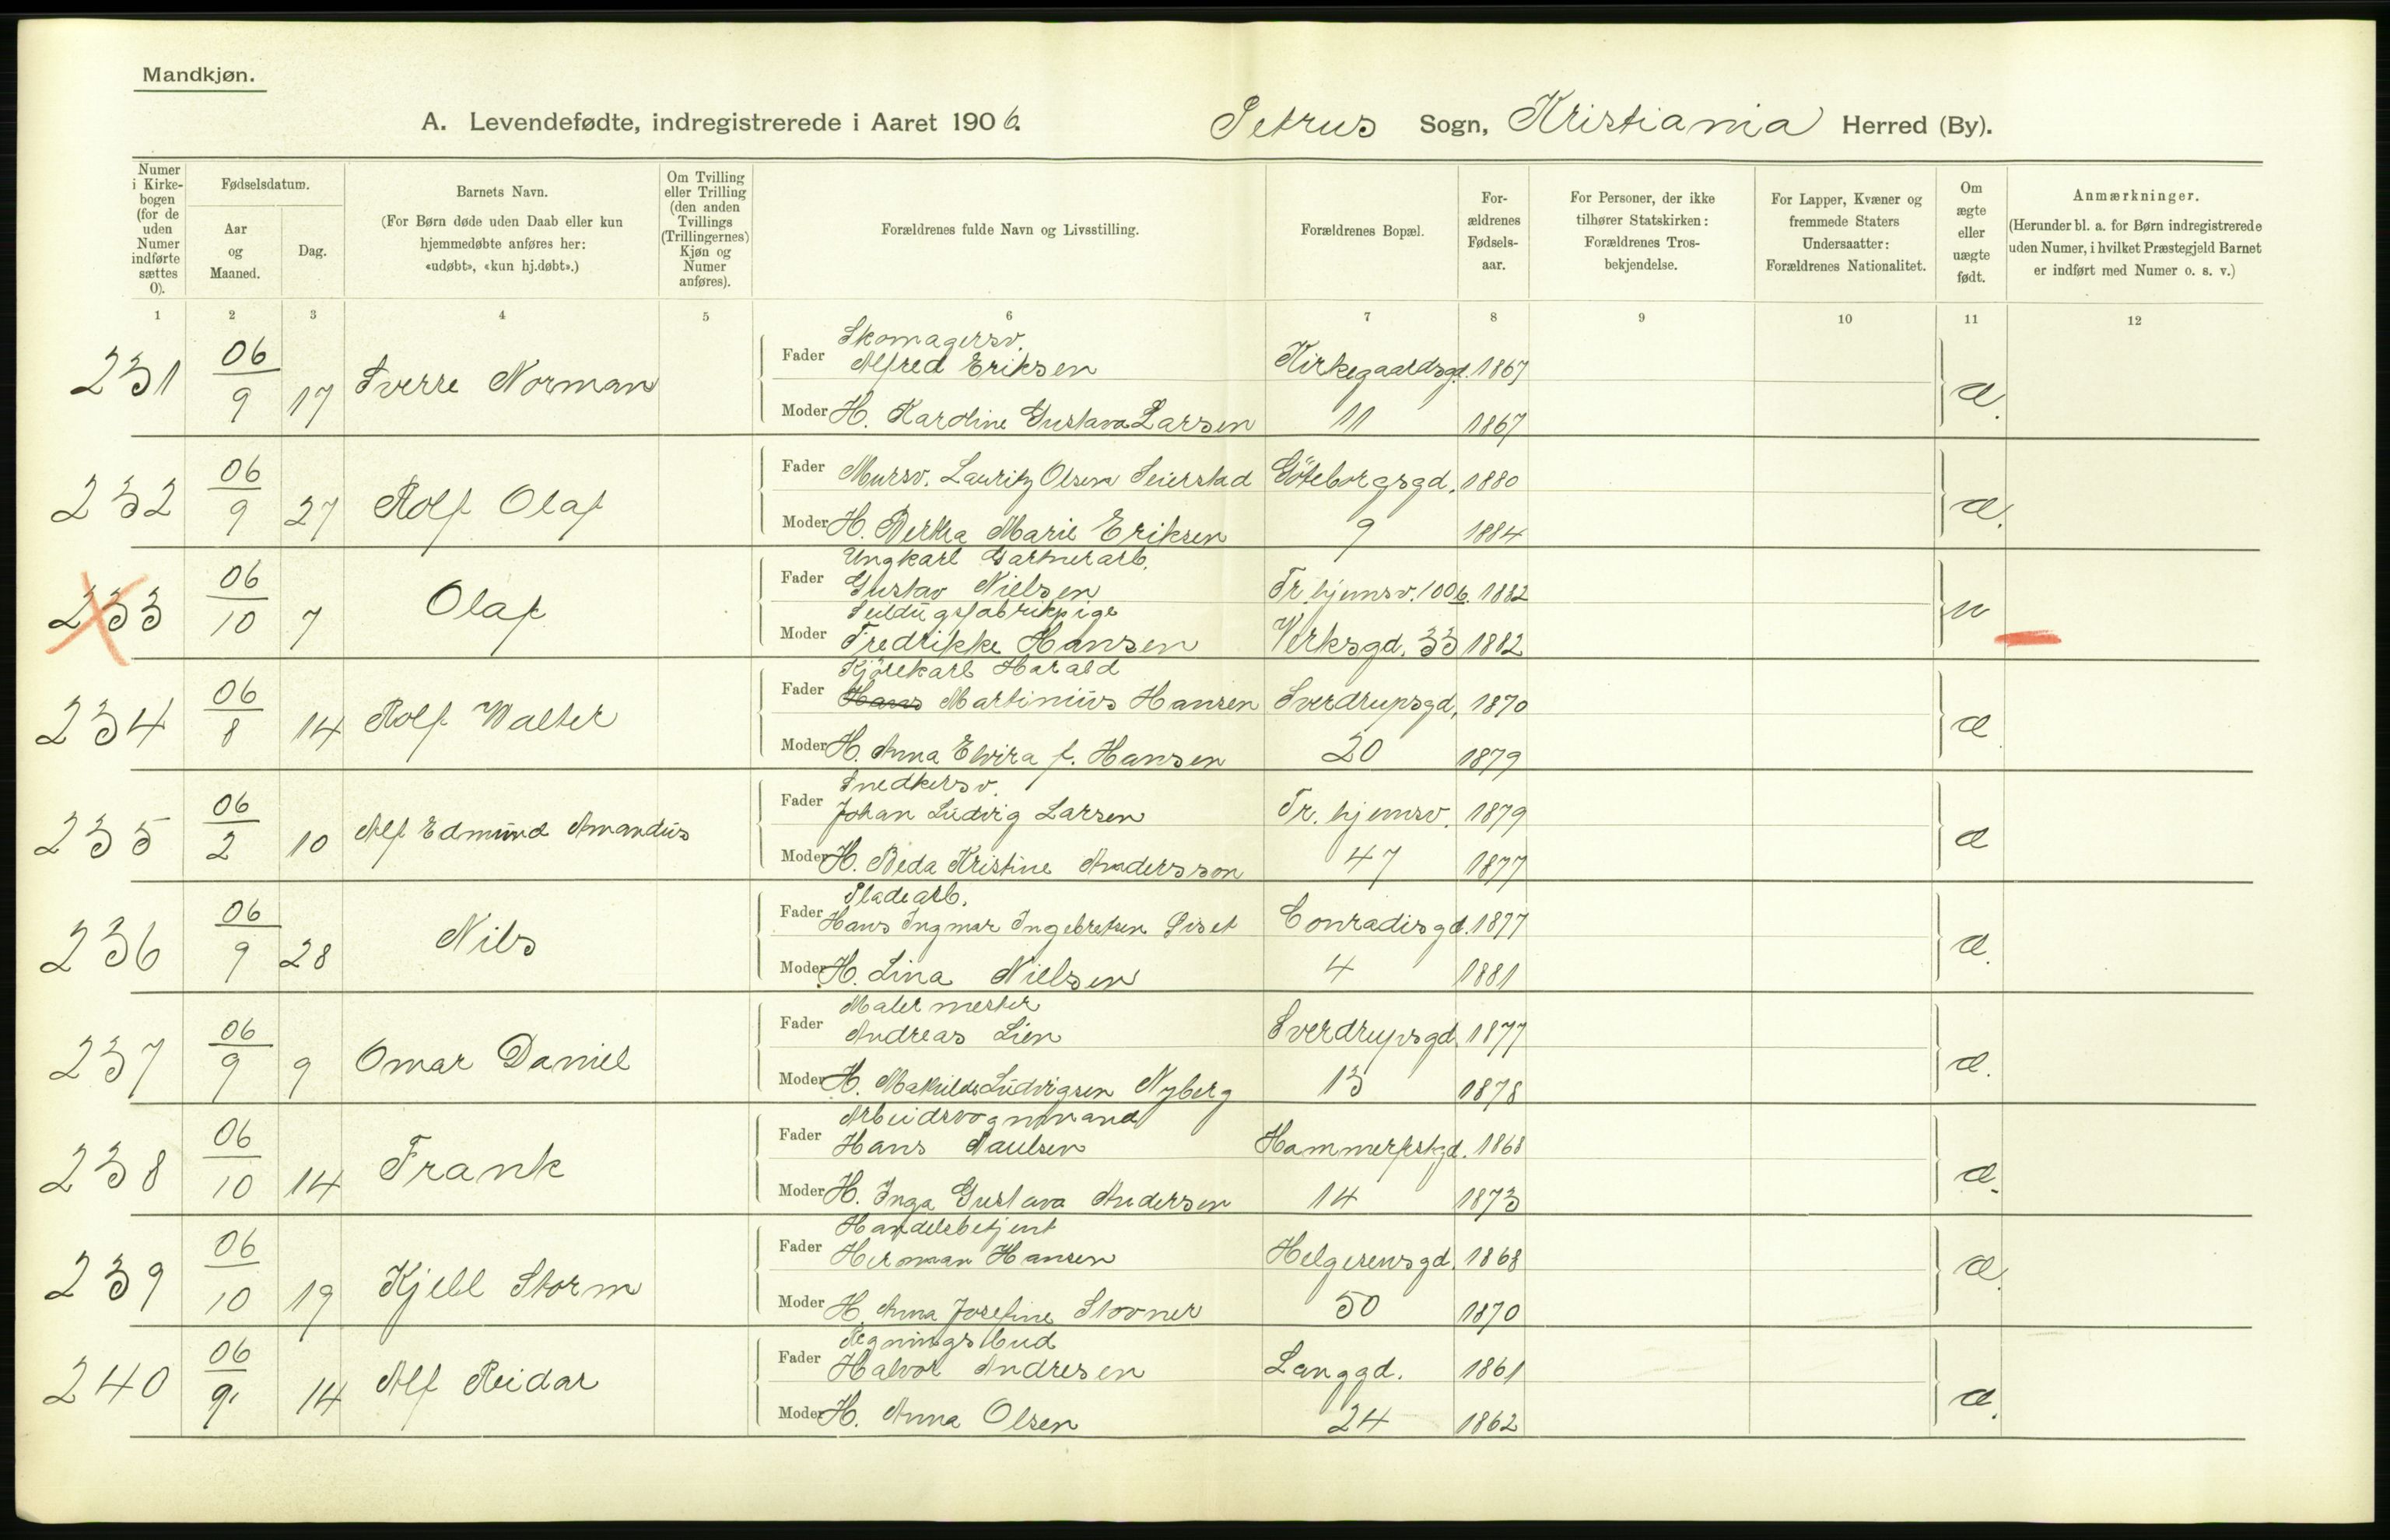 Mandkjøn.
A. Levendefødte, indregistrerede i Aaret 1906. Petrus Sogn, Kristiania Herred (By).
Numer i Kirkebogen (for de uden Numer indførte sættes 0).
Fødselsdatum.
Aar og Maaned.
Dag.
Barnets Navn.
(For Børn døde uden Daab eller kun hjemmedøbte anføres her: «udøbt», «kun hj.døbt».)
Om Tvilling eller Trilling (den anden Tvillings (Trillingernes) Kjøn og Numer anføres).
Forældrenes fulde Navn og Livsstilling.
Forældrenes Bopæl.
Forældrenes Fødselsaar.
For Personer, der ikke tilhører Statskirken: Forældrenes Trosbekjendelse.
For Lapper, Kvæner og fremmede Staters Undersaatter: Forældrenes Nationalitet.
Om ægte eller uægte født.
Anmærkninger.
(Herunder bl. a. for Børn indregistrerede uden Numer, i hvilket Præstegjeld Barnet er indført med Numer o. s. v.)
1 2 3 4 5 6 7 8 9 10 11 12
231 06/9 17 Sverre Norman
Fader Skomagersv. Alfred Eriksen Kirkegaardsgd. 1867 æ.
Moder H. Karoline Gustava Larsen 11 1867
232 06/9 27 Rolf Olaf
Fader Mursv. Lauritz Olsen Seierstad Göteborgsgd. 1880 æ.
Moder H. Bertha Marie Eriksen 9 1884
233 06/10 7 Olaf
Fader Ungkarl Gartnerarb. Gustav Nielsen Tr.hjemsv. 100b. 1882 u
Moder Seildugsfabrikpige Fredrikke Hansen Verksgd. 33 1882
234 06/8 14 Rolf Walter
Fader Kjörekarl Harald Hans Martinius Hansen Sverdrupsgd. 1870 æ
Moder H. Anna Elvira f. Hansen 20 1879
235 06/2 10 Alf Edmund Amandus
Fader Snedkersv. Johan Ludvig Larsen Tr. hjemsv. 1879 æ
Moder H. Beda Kristine Andersson 47 1877
236 06/9 28 Nils
Fader Pladearb. Hans Ingmar Ingebretsen Conradisgd. 1877 æ.
Moder H. Lina Nielsen 4 1881
237 06/9 9 Omar Daniel
Fader Malermester Andreas Lien Sverdrupsgd. 1877 æ.
Moder H. Mathilde Ludvigsen Nyberg 13 1878
238 06/10 14 Frank
Fader Arbeidsvognmand Hans Paulsen Hammerfstgd. 1868 æ.
Moder H. Inga Gustava Andersen 14 1873
239 06/10 19 Kjell Storm
Fader Handelsbetjent Herman Hansen Helgesensgd. 1868 æ.
Moder H. Anna Josefine Stovner 50 1870
240 06/9 14 Alf Reidar
Fader Regningsbud Halvor Andresen Langgd. 1861 æ.
Moder H. Anna Olsen 24 1862